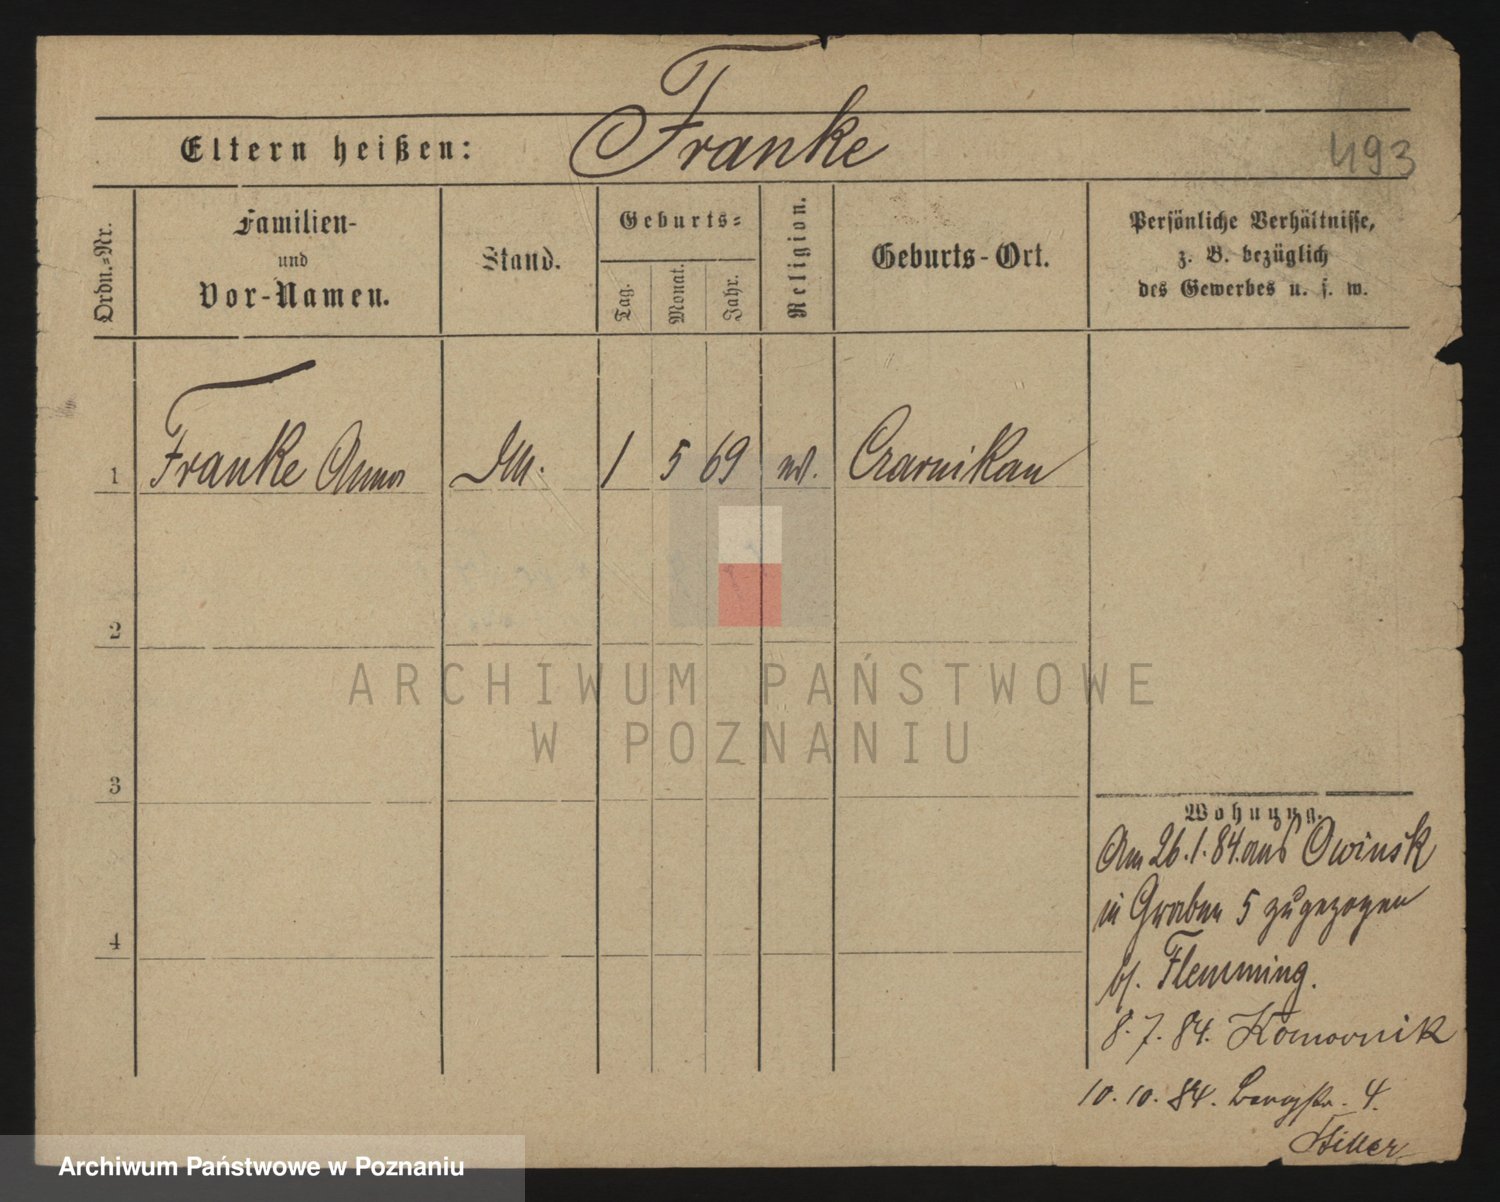 Franke
Eltern heißen:
493
Ordn.-Nr.
Familien-
und
Vor-Namen.
Stand.
Geburts-
Tag.
Monat.
Jahr.
Religion.
Geburts-Ort.
Persönliche Verhältnisse,
z. B. bezüglich
des Gewerbes u. s. w.
1 Franke Anna 1 5 69 Czarnikau
2
3
4
Wohnung.
Am 26.1.84. aus Owinsk
in Graben 5 zugezogen
b/. Flemming.
8.7.84. Komornik
10.10.84. Bergstr. 4.
ARCHIWUM PAŃSTWOWE
W POZNANIU
Archiwum Państwowe w Poznaniu